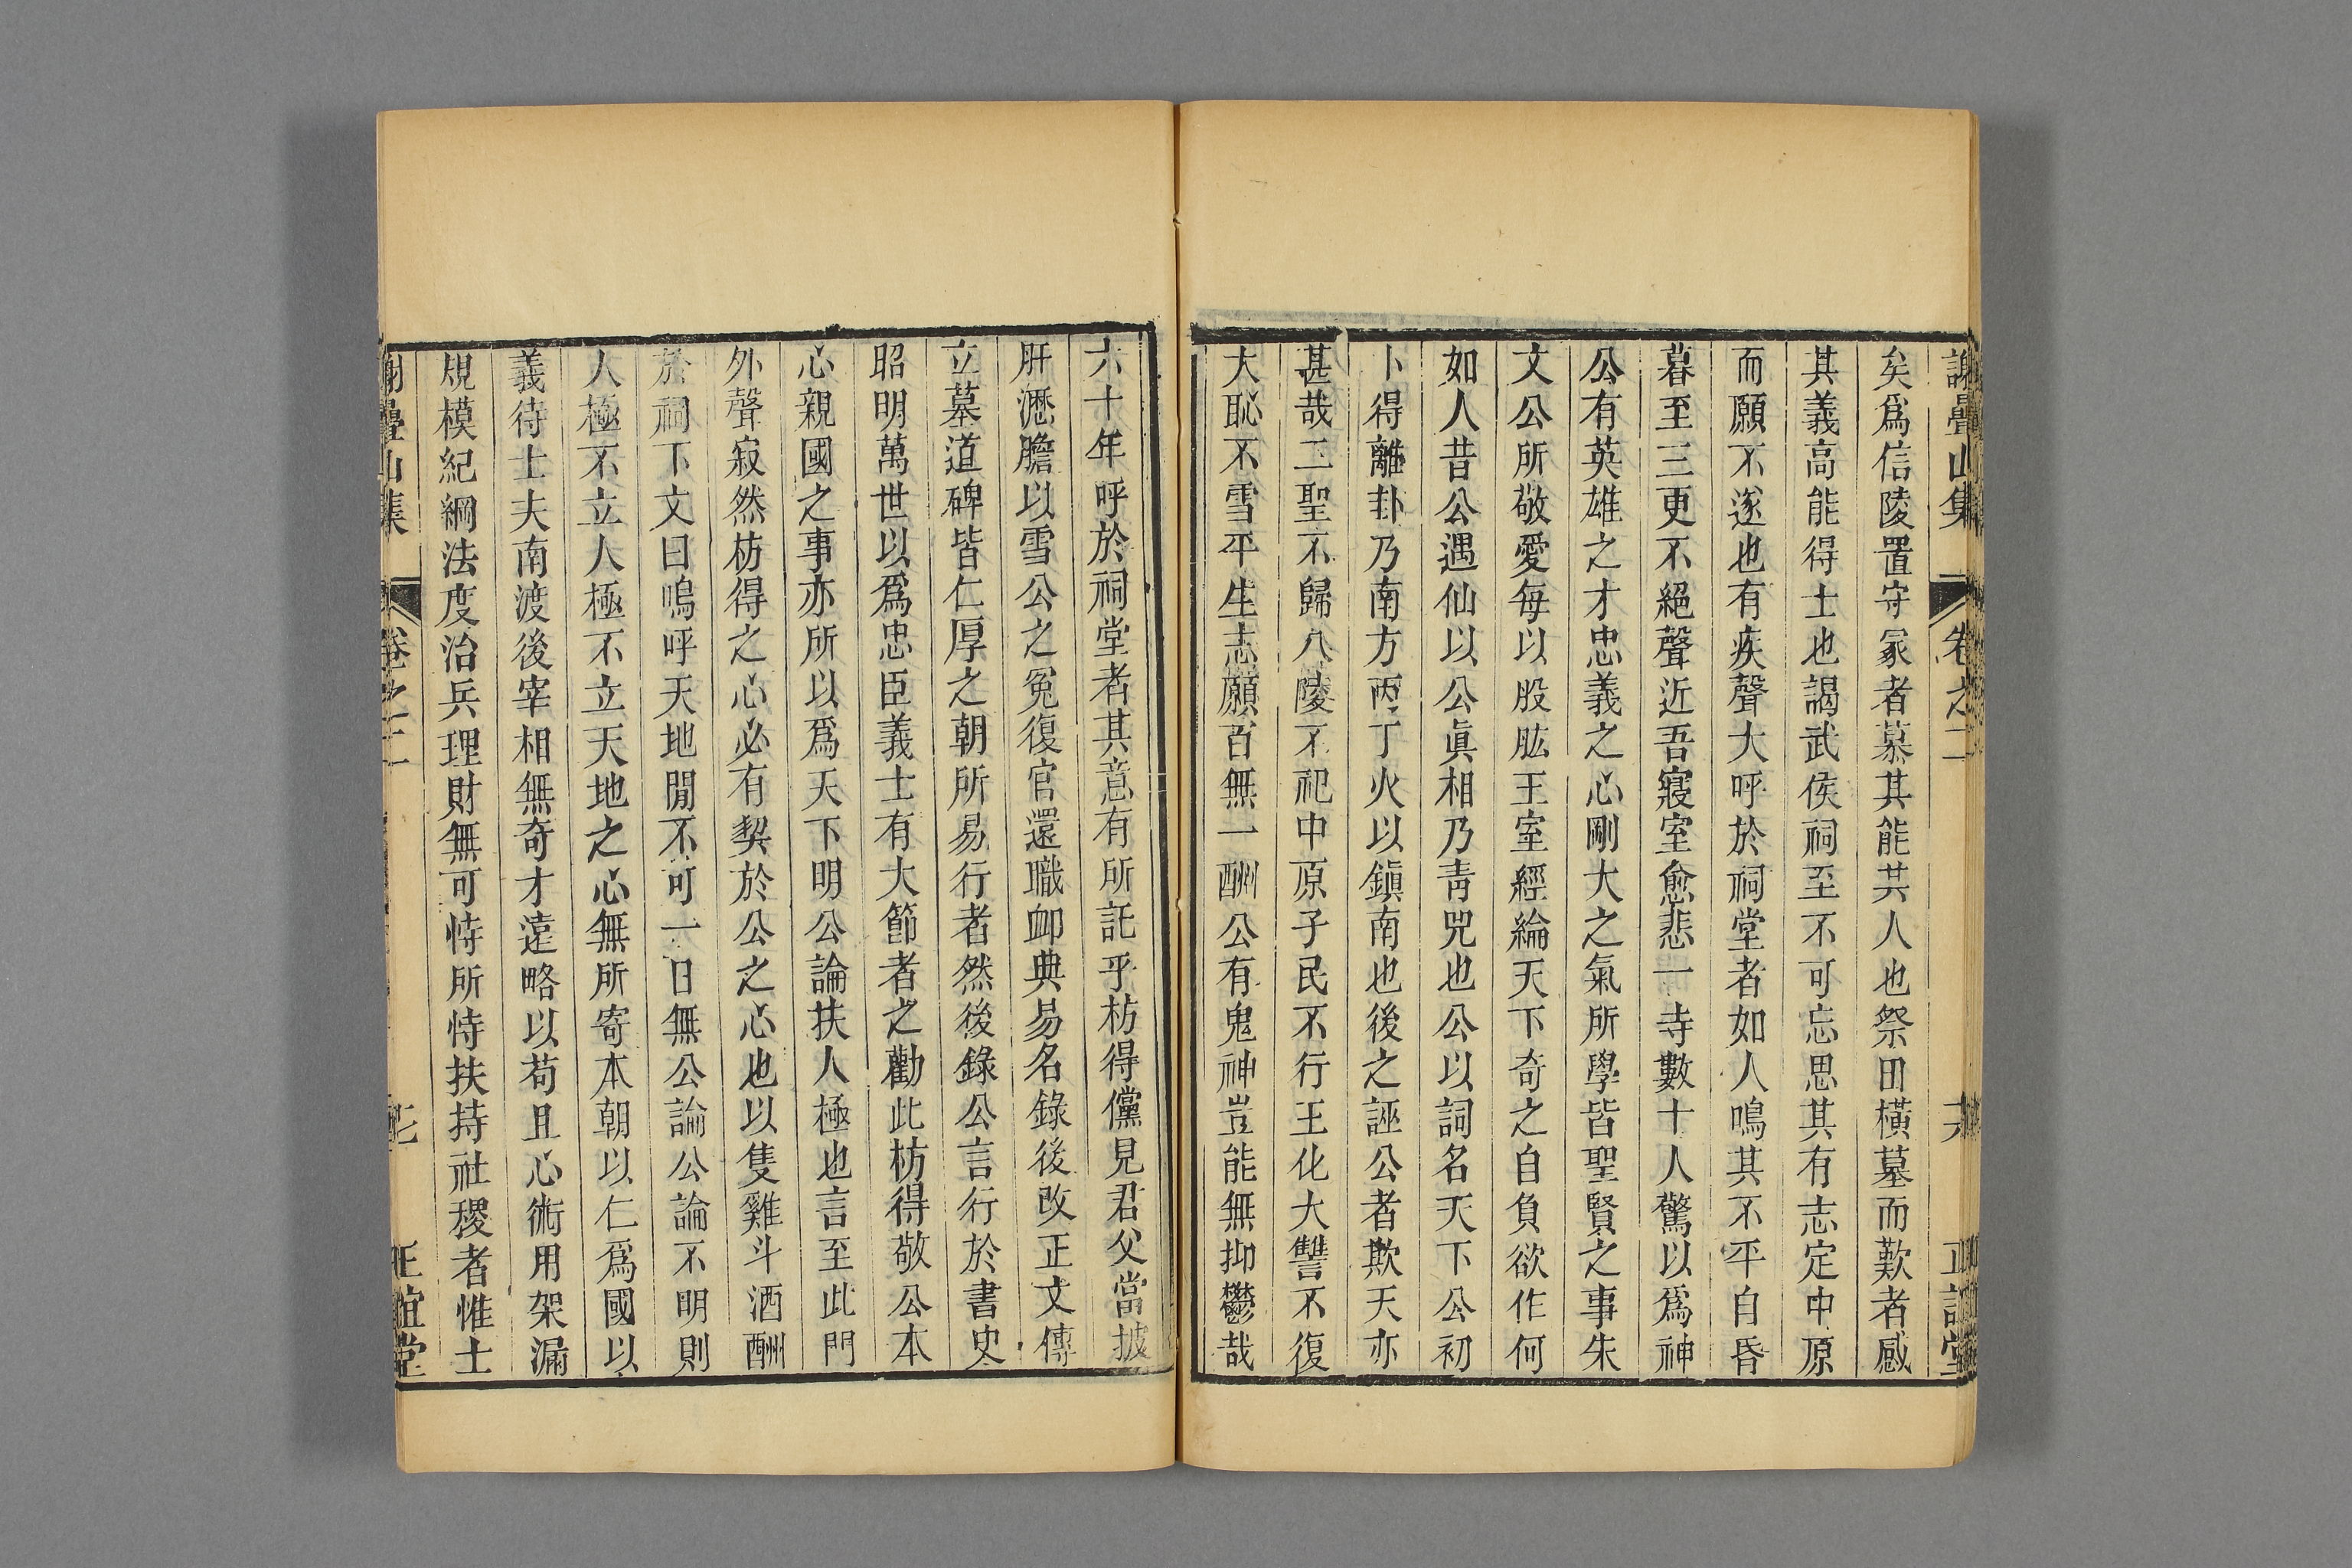 謝疊山集 卷之二 十六 正誼堂
矣爲信陵置守冢者慕其能共人也祭田橫墓而歎者感
其義高能得士也謁武侯祠至不可忘思其有志定中原
而願不遂也有疾聲大呼於祠堂者如人鳴其不平自昏
暮至三更不絕聲近吾寢室愈悲一寺數十人驚以爲神
公有英雄之才忠義之心剛大之氣所學皆聖賢之事朱
文公所敬愛每以股肱王室經綸天下奇之自負欲作何
如人昔公遇仙以公眞相乃靑兕也公以詞名天下公初
卜得離卦乃南方丙丁火以鎭南也後之誣公者欺天亦
甚哉二聖不歸八陵不祀中原子民不行王化大讐不復
大恥不雪平生志願百無一酬公有鬼神豈能無抑鬱哉
六十年呼於祠堂者其意有所託乎枋得儻見君父當披
肝瀝膽以雪公之冤復官還職卹典易名錄後改正文傳
立墓道碑皆仁厚之朝所易行者然後錄公言行於書史
昭明萬世以爲忠臣義士有大節者之勸此枋得敬公本
心親國之事亦所以爲天下明公論扶人極也言至此門
外聲寂然枋得之心必有契於公之心也以隻雞斗酒酬
於祠下文曰嗚呼天地閒不可一日無公論公論不明則
人極不立人極不立天地之心無所寄本朝以仁爲國以
義待士夫南渡後宰相無奇才遠略以苟且心術用架漏
規模紀綱法度治兵理財無可恃所恃扶持社稷者惟士
謝疊山集 卷之二 正誼堂